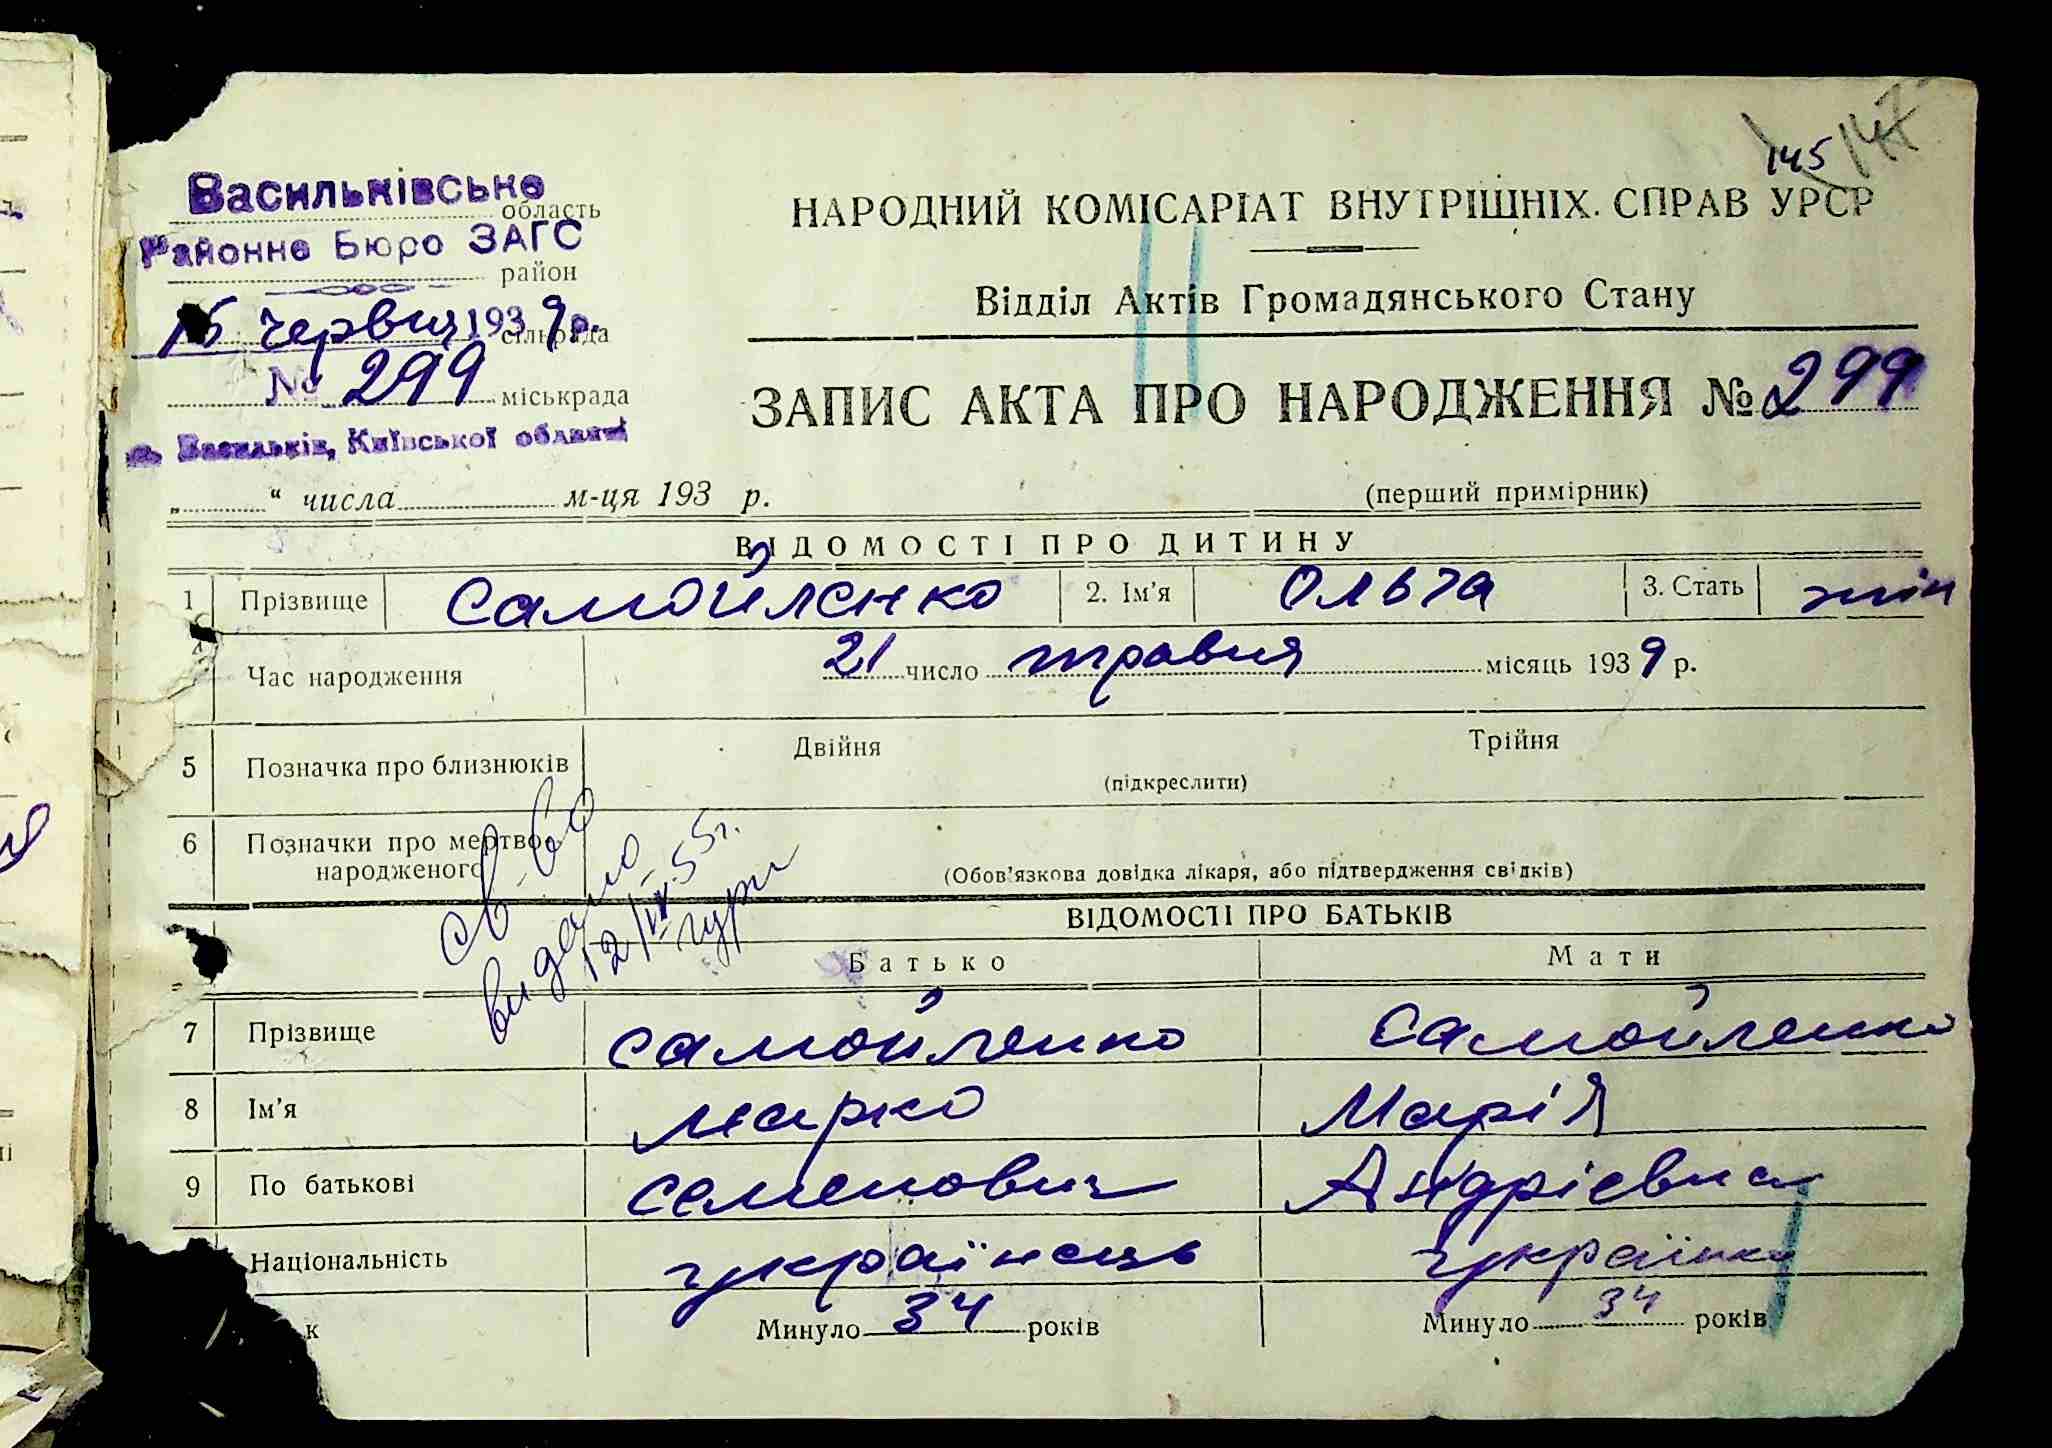 145 147
Васильківське
область
Районне Бюро ЗАГС
район
15 червня 1939 р.
сільрада
№ 299
міськрада
м. Васильків, Київської області
„ “ числа м-ця 193 р.
НАРОДНИЙ КОМІСАРІАТ ВНУТРІШНІХ СПРАВ УРСР
Відділ Актів Громадянського Стану
ЗАПИС АКТА ПРО НАРОДЖЕННЯ № 299
(перший примірник)
ВІДОМОСТІ ПРО ДИТИНУ
1 Прізвище Самойленко 2. Ім’я Ольга 3. Стать жін
Час народження 21 число травня місяць 1939 р.
5 Позначка про близнюків Двійня Трійня
(підкреслити)
6 Позначки про мертво-
народженого (Обов’язкова довідка лікаря, або підтвердження свідків)
св-во
видано
12/IV-55г.
ВІДОМОСТІ ПРО БАТЬКІВ
Батько Мати
7 Прізвище Самойленко Самойленко
8 Ім’я Марко Марія
9 По батькові Семенович Андрієвна
Національність українець українка
к Минуло 34 років Минуло 34 років